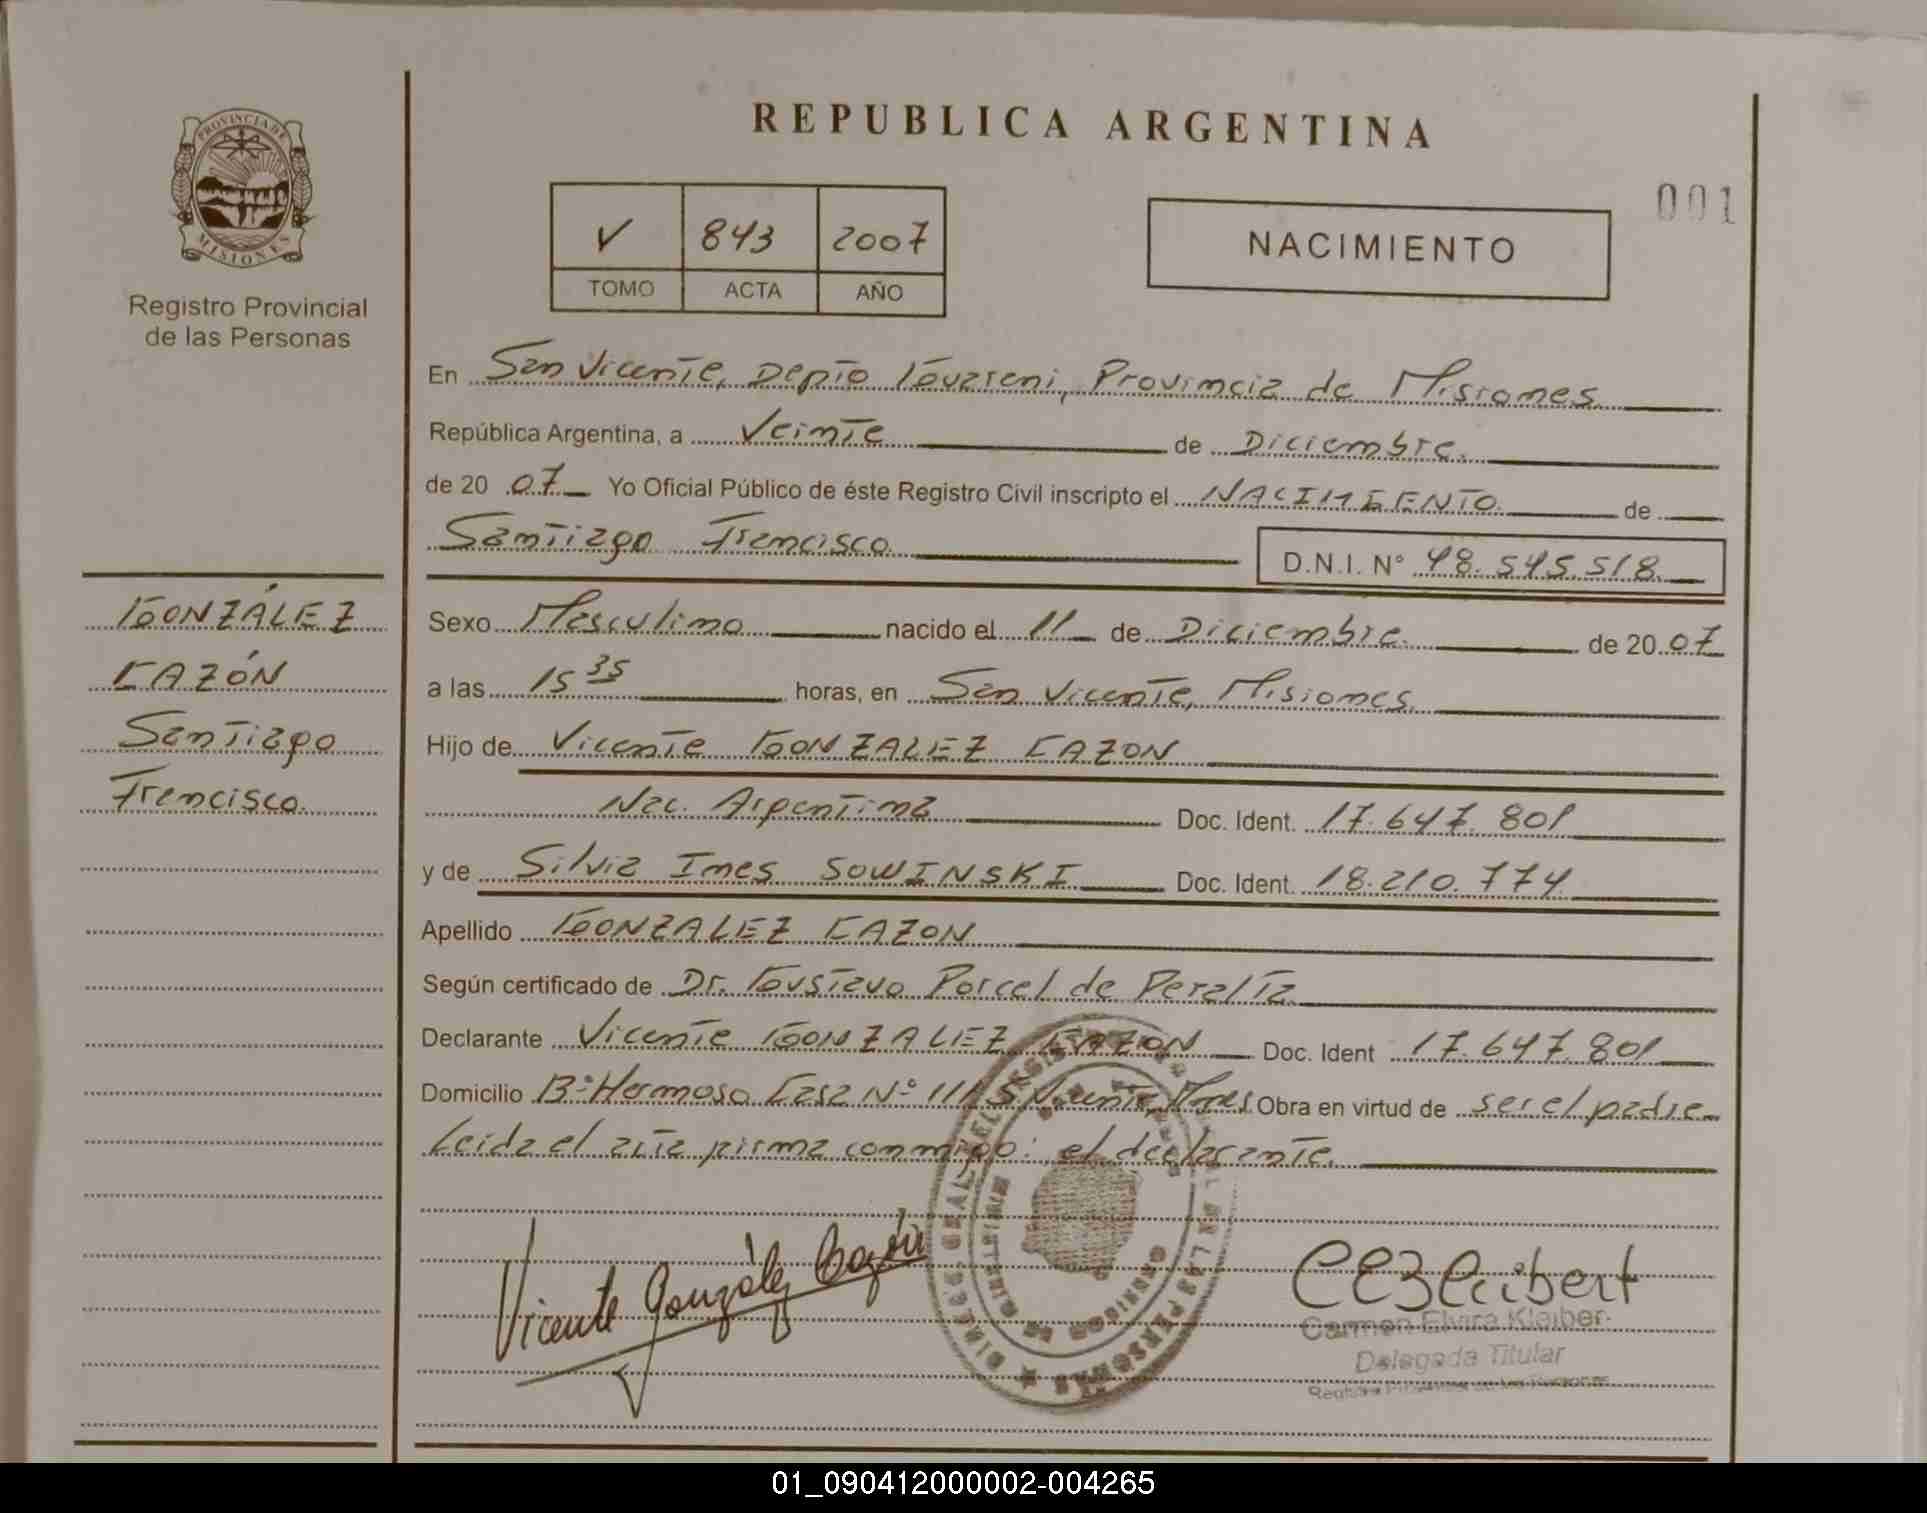 REPUBLICA ARGENTINA
PROVINCIA DE
MISIONES
Registro Provincial
de las Personas
V 843 2007
TOMO ACTA AÑO
NACIMIENTO
001
En San Vicente, Depto Guaraní, Provincia de Misiones
República Argentina, a Veinte de Diciembre
de 20 07 Yo Oficial Público de éste Registro Civil inscripto el NACIMIENTO de
Santiago Francisco D.N.I. Nº 48.545.518
GONZÁLEZ
CAZÓN
Santiago
Francisco
Sexo Masculino nacido el 11 de Diciembre de 20 07
a las 15 35 horas, en San Vicente, Misiones
Hijo de Vicente GONZALEZ CAZON
Nac. Argentina Doc. Ident. 17.647.801
y de Silvia Ines SOWINSKI Doc. Ident. 18.210.774
Apellido GONZALEZ CAZON
Según certificado de Dr. Gustavo Porcel de Peralta
Declarante Vicente GONZALEZ CAZON Doc. Ident 17.647.801
Domicilio Bº Hermoso Casa Nº 111 S. Vicente, Mnes Obra en virtud de ser el padre
Leida el acta firma conmigo: el declarante
Vicente González Cazón
Carmen Elvira Kleiber
Delegada Titular
Registro Provincial de las Personas
01_090412000002-004265